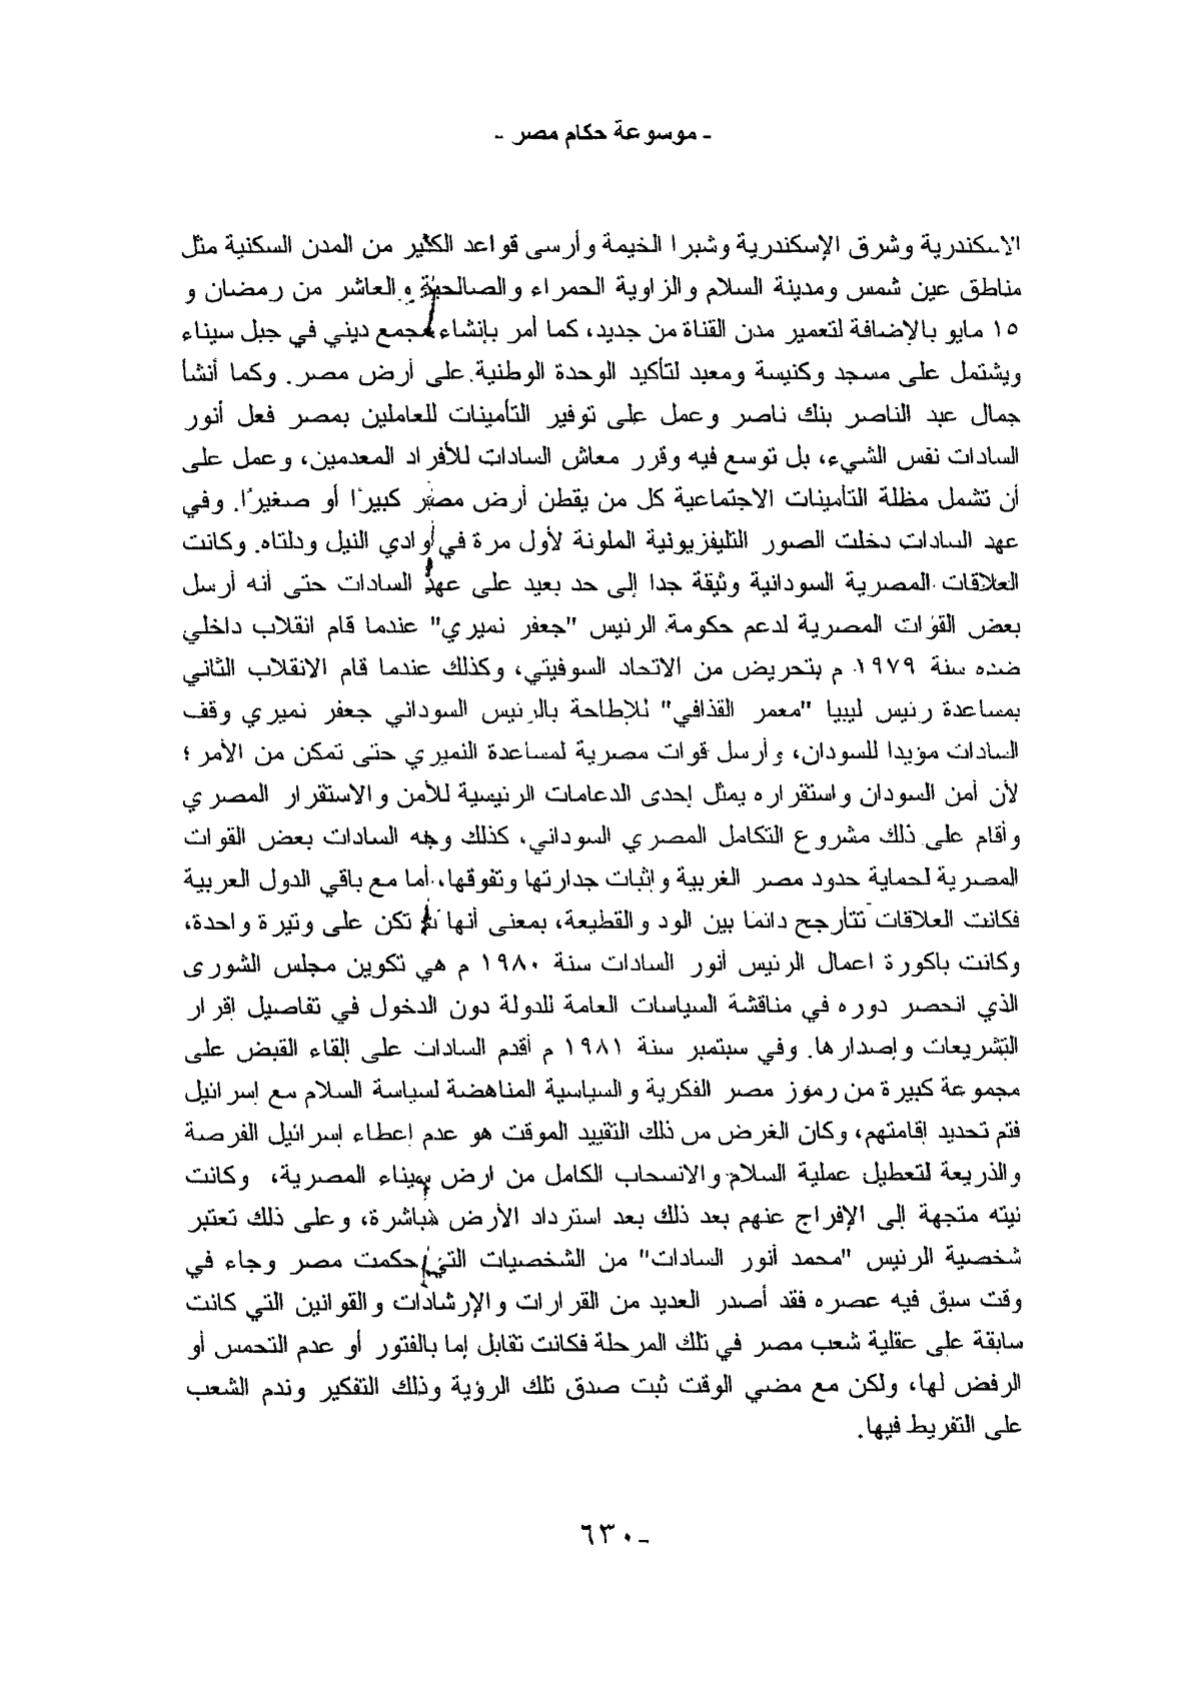 - موسوعة حكام مصر -
الإسكندرية وشرق الإسكندرية وشبرا الخيمة وأرسى قواعد الكثير من المدن السكنية مثل
مناطق عين شمس ومدينة السلام والزاوية الحمراء والصالحية والعاشر من رمضان و
١٥ مايو بالإضافة لتعمير مدن القناة من جديد، كما أمر بإنشاء مجمع ديني في جبل سيناء
ويشتمل على مسجد وكنيسة ومعبد لتأكيد الوحدة الوطنية على أرض مصر. وكما أنشأ
جمال عبد الناصر بنك ناصر وعمل على توفير التأمينات للعاملين بمصر فعل أنور
السادات نفس الشيء، بل توسع فيه وقرر معاش السادات للأفراد المعدمين، وعمل على
أن تشمل مظلة التأمينات الاجتماعية كل من يقطن أرض مصر كبيرًا أو صغيرًا. وفي
عهد السادات دخلت الصور التليفزيونية الملونة لأول مرة في وادي النيل ودلتاه. وكانت
العلاقات المصرية السودانية وثيقة جدا إلى حد بعيد على عهد السادات حتى أنه أرسل
بعض القوات المصرية لدعم حكومة الرئيس "جعفر نميري" عندما قام انقلاب داخلي
ضده سنة ١٩٧٩ م بتحريض من الاتحاد السوفيتي، وكذلك عندما قام الانقلاب الثاني
بمساعدة رئيس ليبيا "معمر القذافي" للإطاحة بالرئيس السوداني جعفر نميري وقف
السادات مؤيدا للسودان، وأرسل قوات مصرية لمساعدة النميري حتى تمكن من الأمر ؛
لأن أمن السودان واستقراره يمثل إحدى الدعامات الرئيسية للأمن والاستقرار المصري
وأقام على ذلك مشروع التكامل المصري السوداني، كذلك وجه السادات بعض القوات
المصرية لحماية حدود مصر الغربية وإثبات جدارتها وتفوقها، أما مع باقي الدول العربية
فكانت العلاقات تتأرجح دائما بين الود والقطيعة، بمعنى أنها لم تكن على وتيرة واحدة،
وكانت باكورة اعمال الرئيس أنور السادات سنة ١٩٨٠ م هي تكوين مجلس الشورى
الذي انحصر دوره في مناقشة السياسات العامة للدولة دون الدخول في تفاصيل إقرار
التشريعات وإصدارها. وفي سبتمبر سنة ١٩٨١ م أقدم السادات على إلقاء القبض على
مجموعة كبيرة من رموز مصر الفكرية والسياسية المناهضة لسياسة السلام مع إسرائيل
فتم تحديد إقامتهم، وكان الغرض من ذلك التقييد الموقت هو عدم إعطاء إسرائيل الفرصة
والذريعة لتعطيل عملية السلام والانسحاب الكامل من ارض سيناء المصرية، وكانت
نيته متجهة إلى الإفراج عنهم بعد ذلك بعد استرداد الأرض مباشرة، وعلى ذلك تعتبر
شخصية الرئيس "محمد أنور السادات" من الشخصيات التي حكمت مصر وجاء في
وقت سبق فيه عصره فقد أصدر العديد من القرارات والإرشادات والقوانين التي كانت
سابقة على عقلية شعب مصر في تلك المرحلة فكانت تقابل إما بالفتور أو عدم التحمس أو
الرفض لها، ولكن مع مضي الوقت ثبت صدق تلك الرؤية وذلك التفكير وندم الشعب
على التفريط فيها.
-٦٣٠